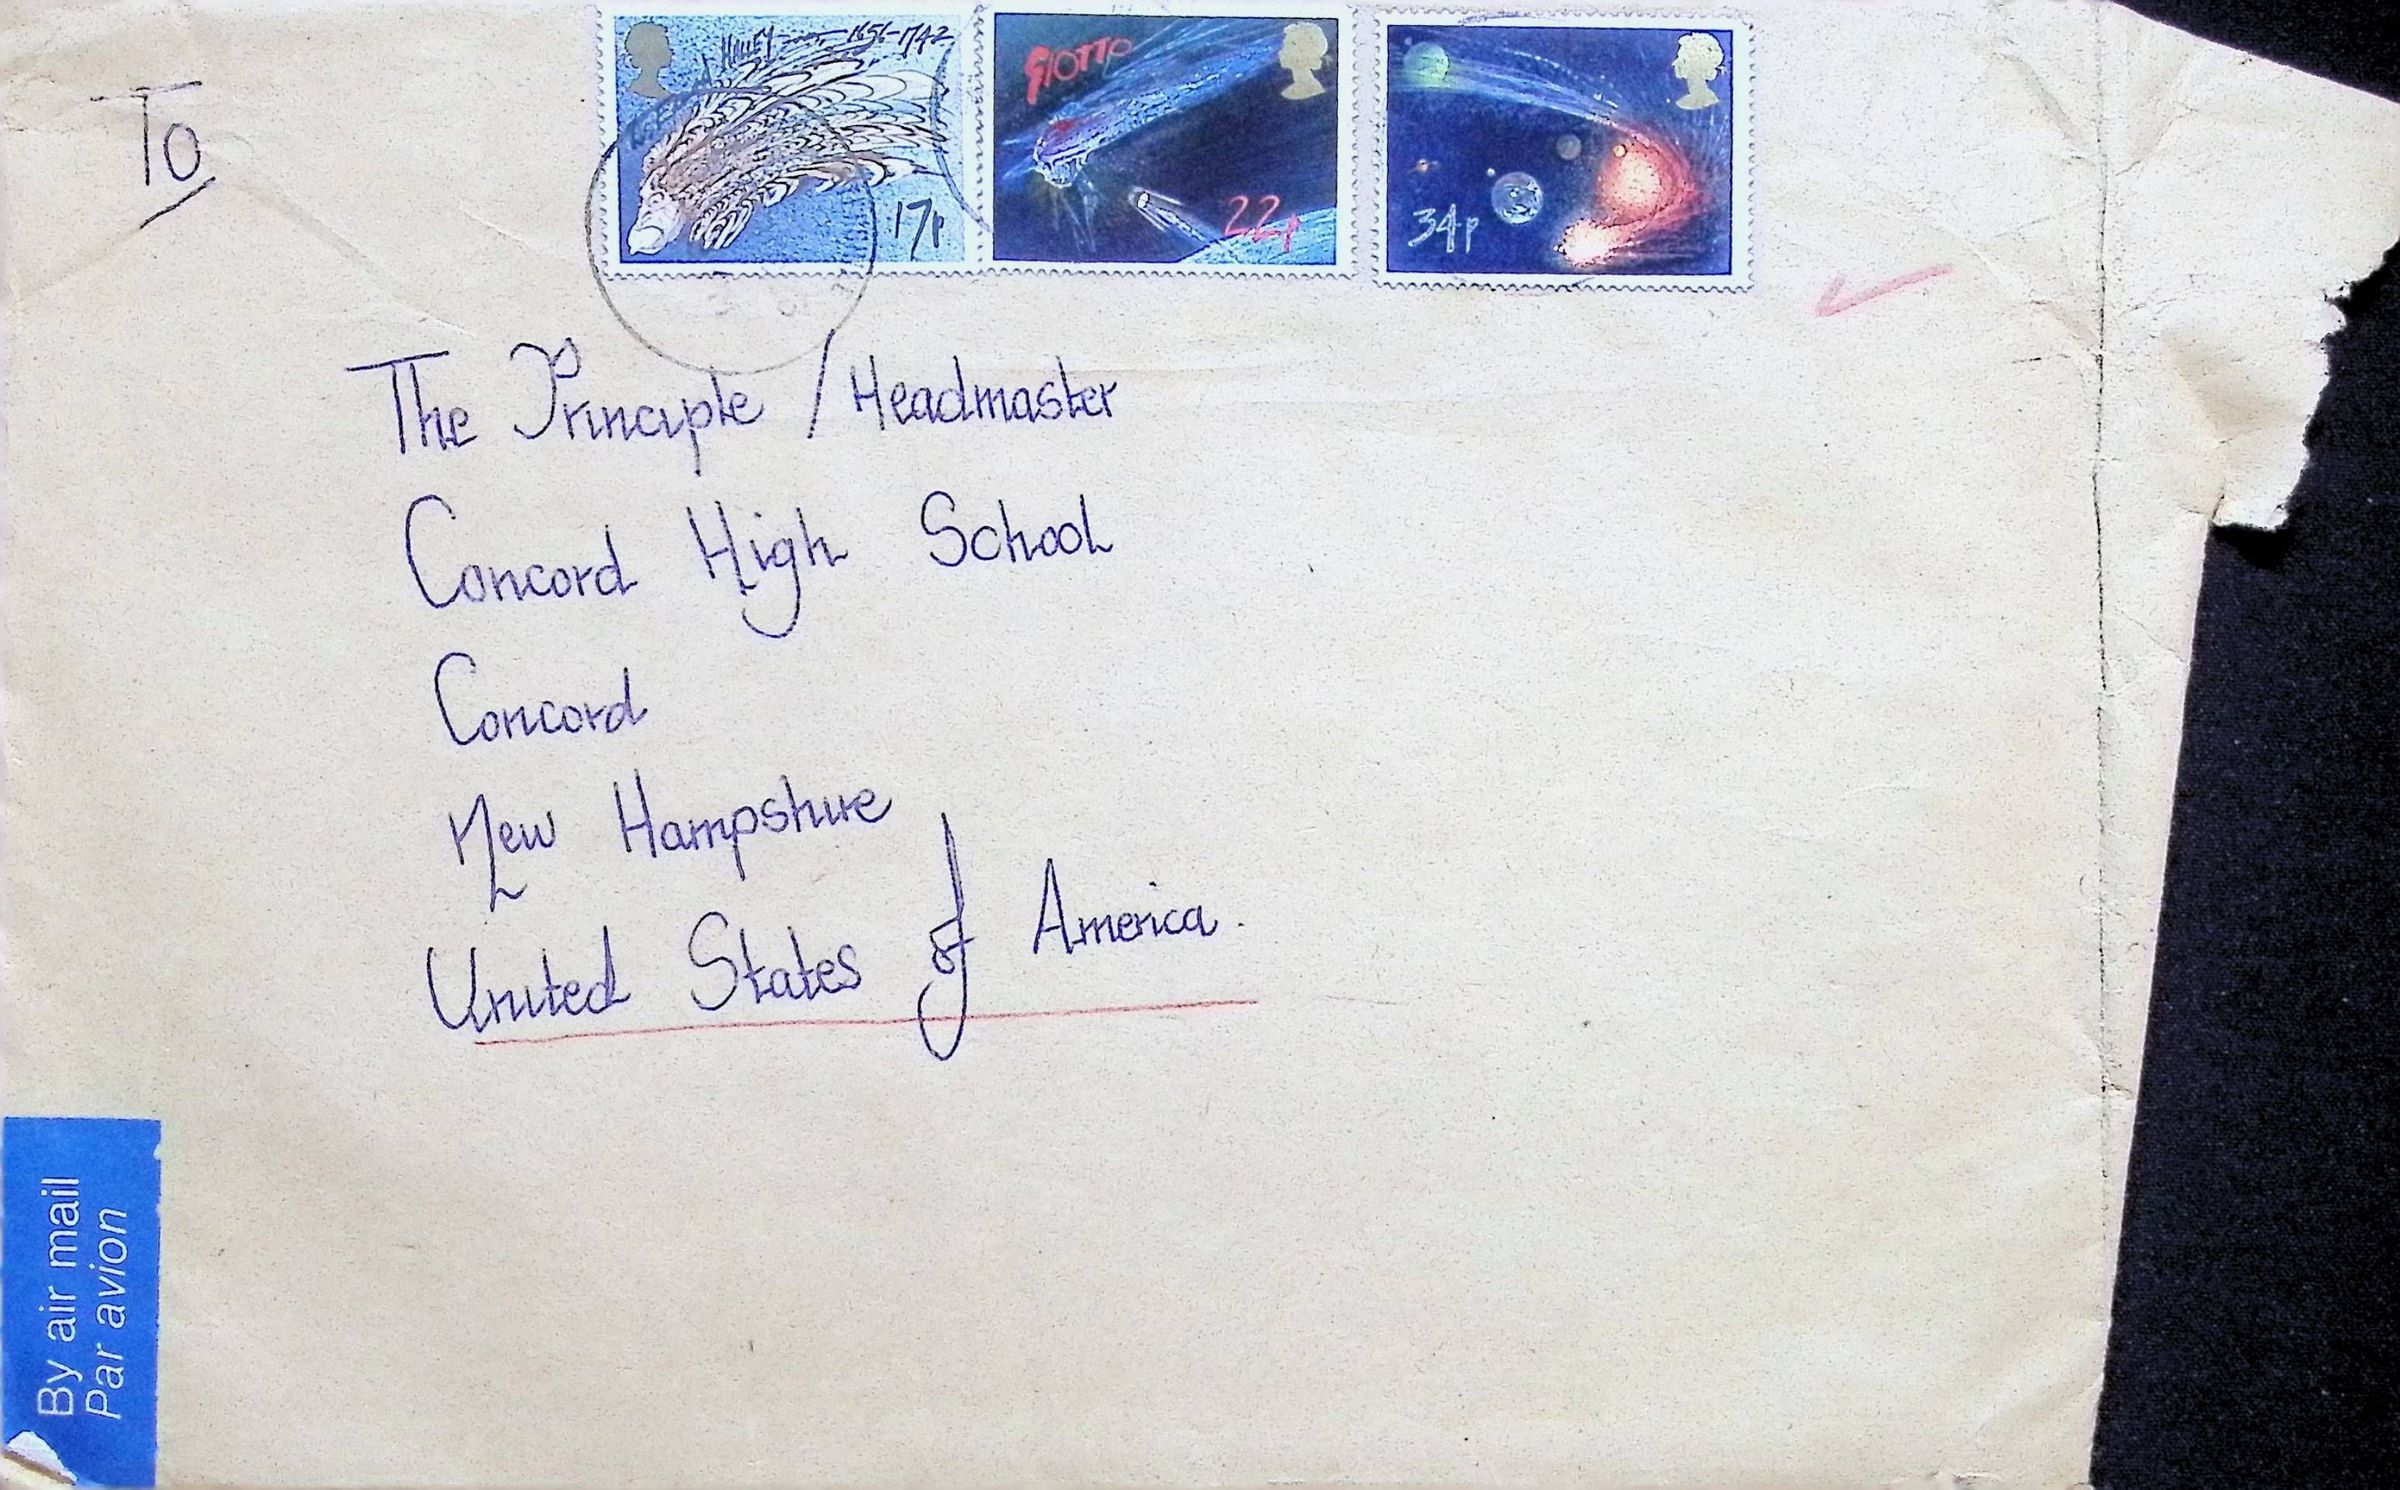 HALLEY 1656-1742
17p
GIOTTO
22p
34p
To
The Principle / Headmaster
Concord High School
Concord
New Hampshire
United States of America.
By air mail
Par avion